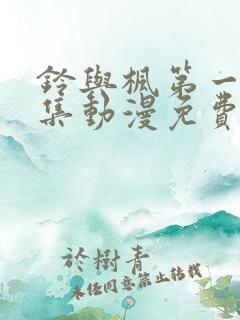 鈴與楓第一
集動漫免費
於樹青
未经同意禁止转载